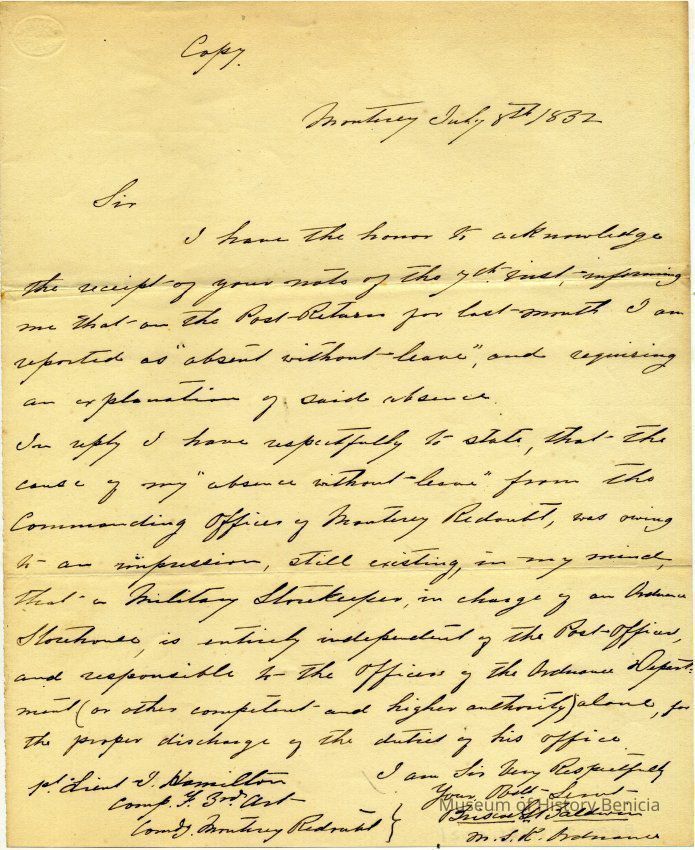 Copy.
Monterey July 8th 1832
Sir
I have the honor to acknowledge
the receipt of your note of the 7th inst, informing
me that on the Post Return for last month I am
reported as "absent without leave", and requiring
an explanation of said absence.
In reply I have respectfully to state, that the
cause of my "absence without leave" from the
Commanding Officer of Monterey Redoubt, was owing
to an impression, still existing, in my mind,
that a Military Storekeeper, in charge of an Ordnance
Storehouse, is entirely independent of the Post Officer,
and responsible to the Officers of the Ordnance Depart-
ment (or other competent and higher authority) alone, for
the proper discharge of the duties of his office
I am Sir Very Respectfully
Your Obdt Servt
Baldwin
M. S. K. Ordnance
Lieut J. Hamilton
Comp. F. 3rd Art
Comdg. Monterey Redoubt
Museum of History Benicia